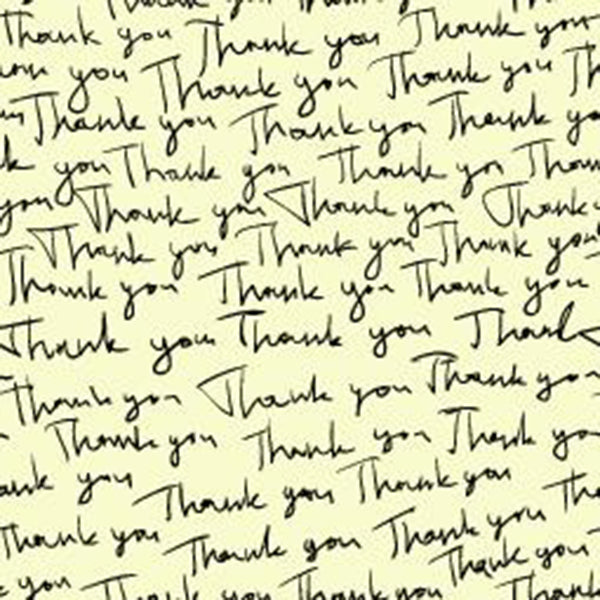 Thank you Thank
Thank you Thank you Thank you
you Thank you Thank you Th
Thank you Thank you Thank yo
k you Thank you Thank you Than
you Thank you Thank you Thank
Thank you Thank you Thank you
Thank you Thank you Thank you
Thank you Thank you Thank
Thank you Thank you Thank you
Thank you Thank you Thank yo
ank you Thank you Thank you Tha
Thank you Thank you Thank you
you Thank you Thank you Thank you
Thank